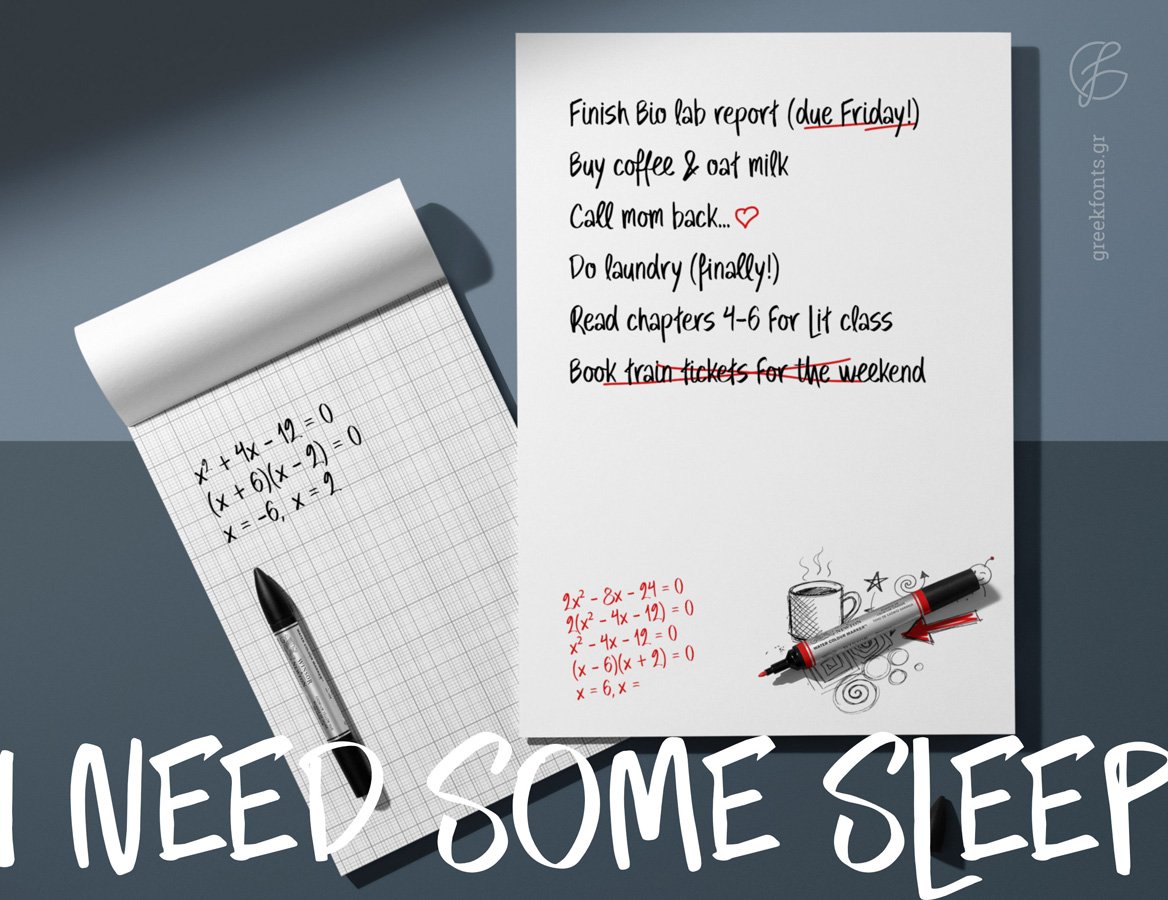 Finish Bio lab report (due Friday!)
Buy coffee & oat milk
Call mom back...
Do laundry (finally!)
Read chapters 4-6 For Lit class
Book train tickets for the weekend
greekfonts.gr
x² + 4x - 12 = 0
(x + 6)(x - 2) = 0
x = -6, x = 2
2x² - 8x - 24 = 0
2(x² - 4x - 12) = 0
x² - 4x - 12 = 0
(x - 6)(x + 2) = 0
x = 6, x =
WATER COLOUR MARKER
I NEED SOME SLEEP